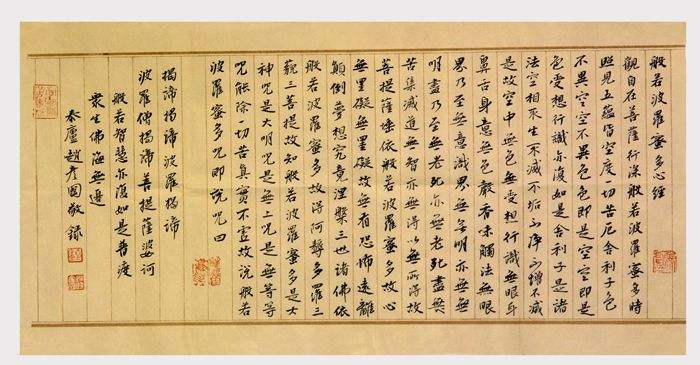 般若波羅蜜多心經
觀自在菩薩行深般若波羅蜜多時
照見五蘊皆空度一切苦厄舍利子色
不異空空不異色色即是空空即是
色受想行識亦復如是舍利子是諸
法空相不生不滅不垢不淨不增不減
是故空中無色無受想行識無眼耳
鼻舌身意無色聲香味觸法無眼
界乃至無意識界無無明亦無無
明盡乃至無老死亦無老死盡無
苦集滅道無智亦無得以無所得故
菩提薩埵依般若波羅蜜多故心
無罣礙無罣礙故無有恐怖遠離
顛倒夢想究竟涅槃三世諸佛依
般若波羅蜜多故得阿耨多羅三
藐三菩提故知般若波羅蜜多是大
神咒是大明咒是無上咒是無等等
咒能除一切苦真實不虛故說般若
波羅蜜多咒即說咒曰
揭諦揭諦波羅揭諦
波羅僧揭諦菩提薩婆訶
般若智慧亦復如是普渡
眾生佛海無邊
泰廬趙彥國敬錄